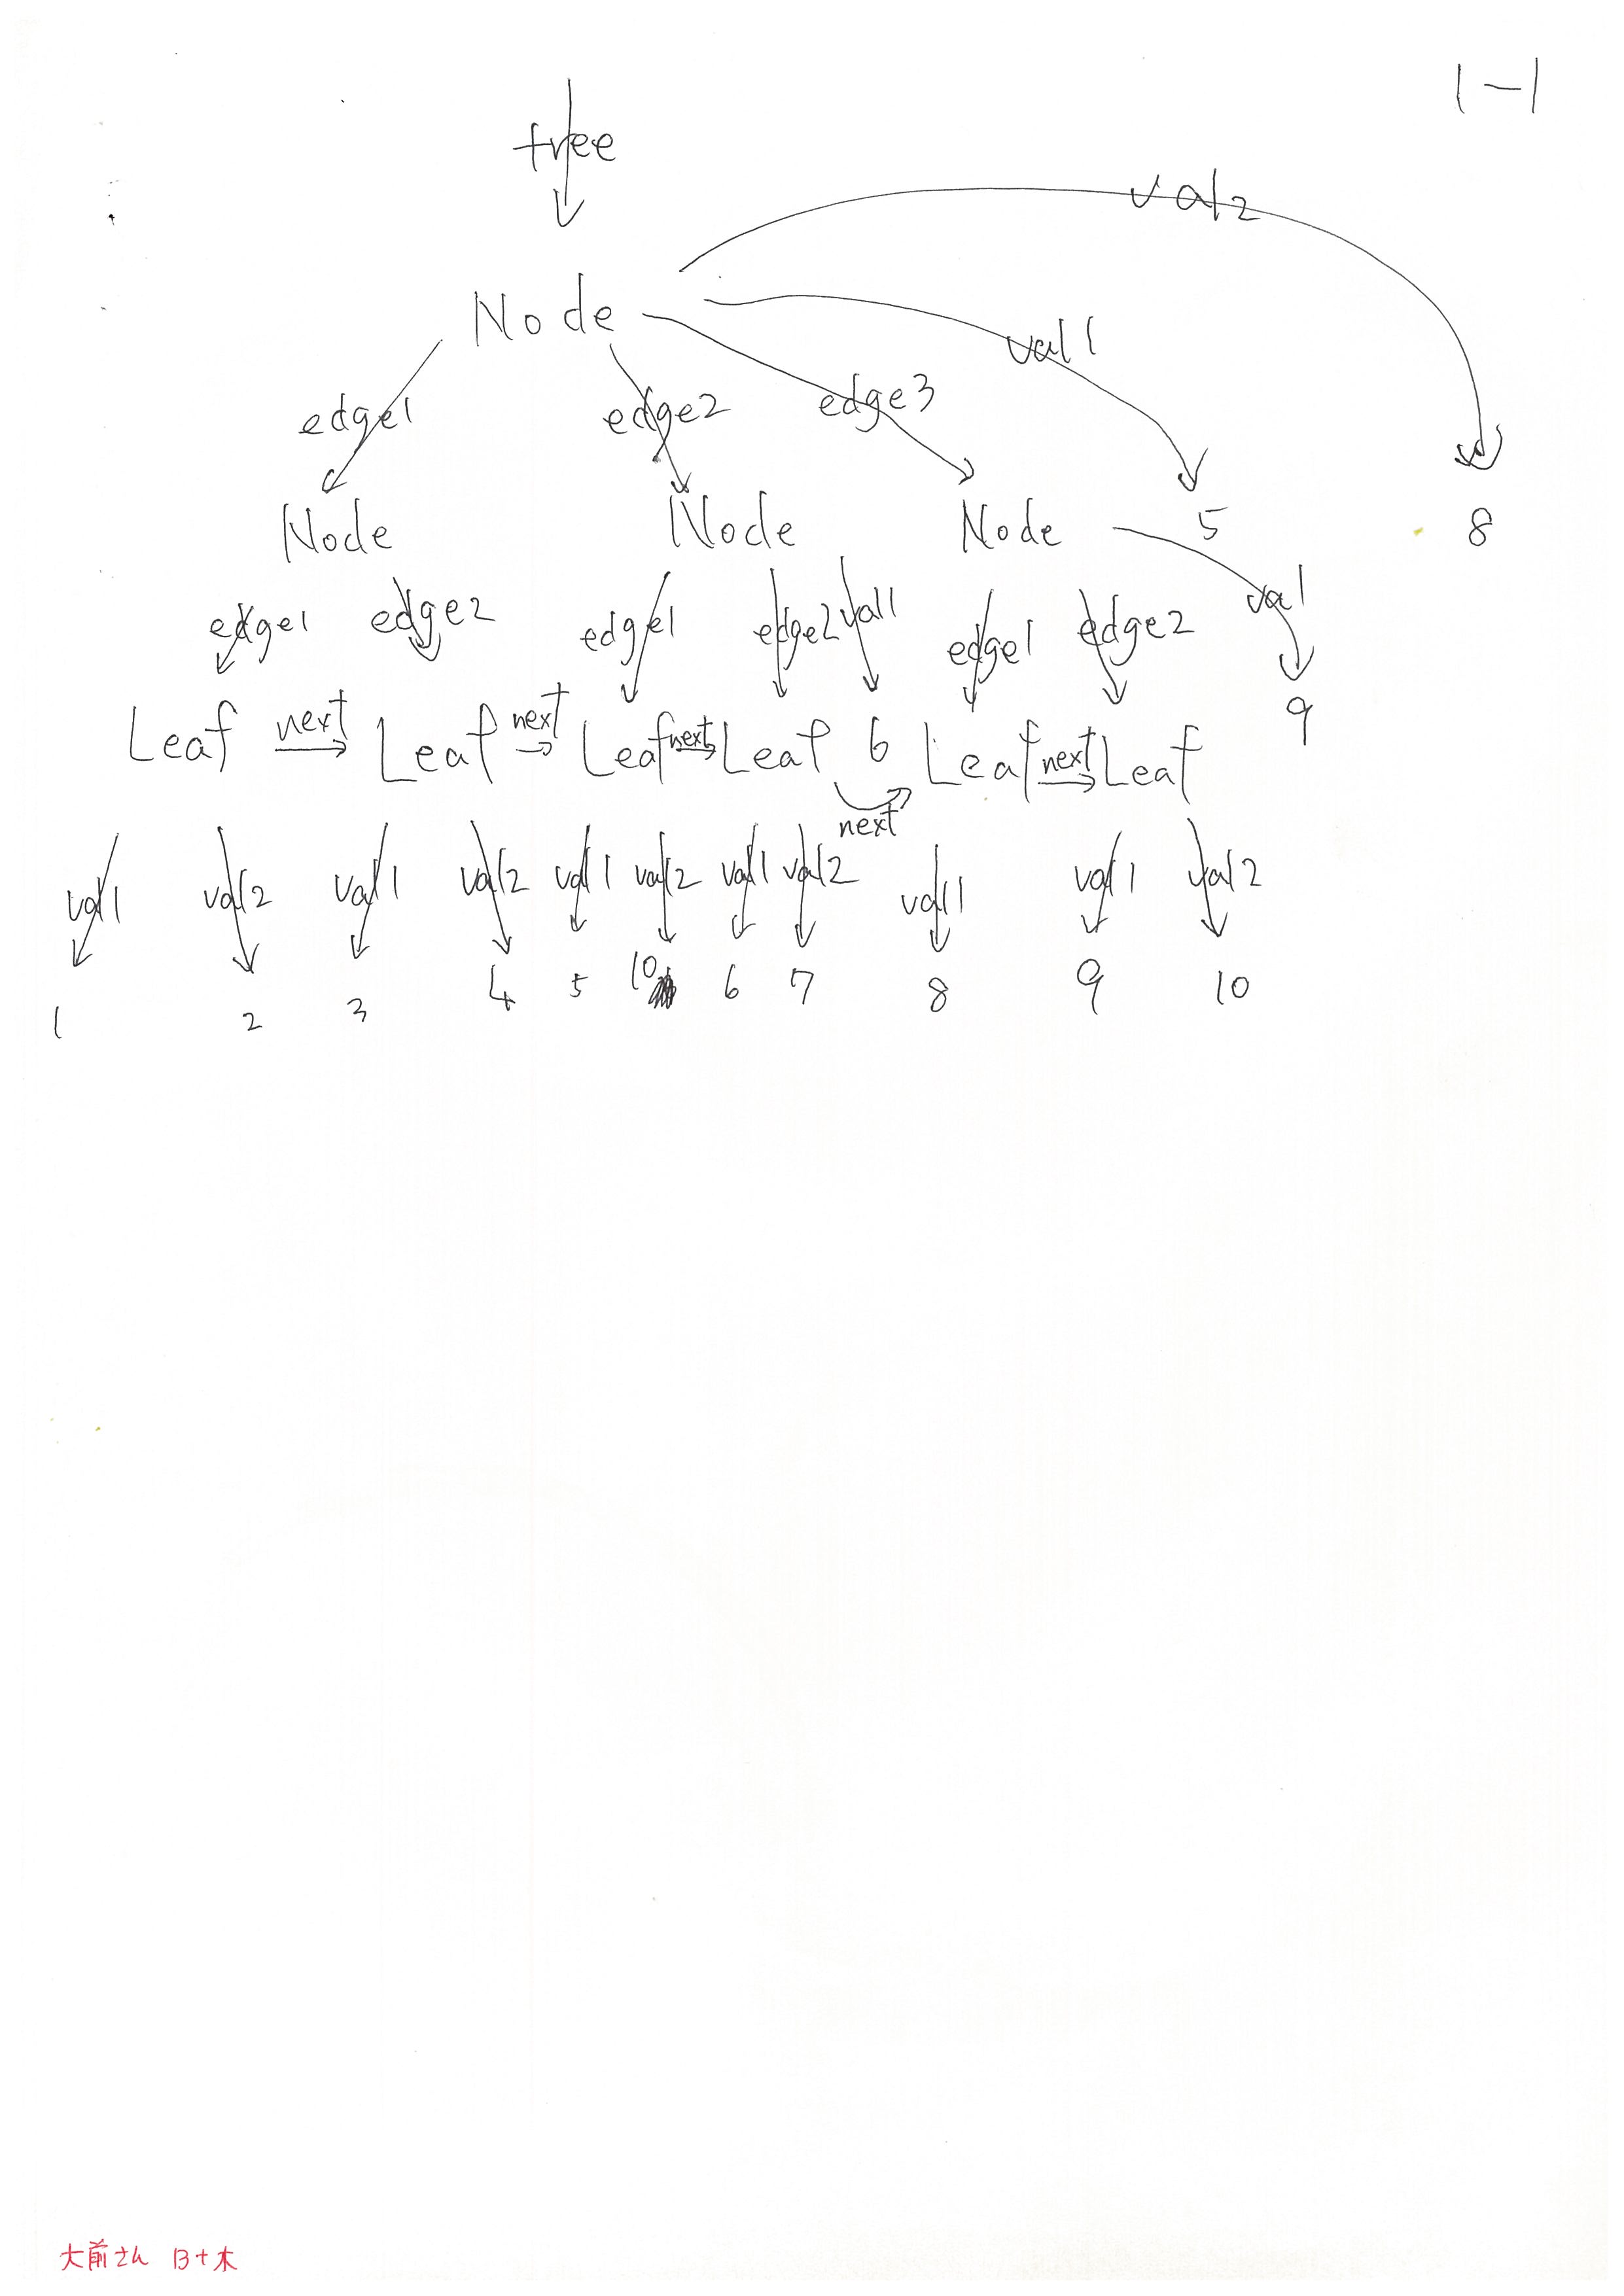 1-1
tree
val2
Node
val1
edge1 edge2 edge3
Node Node Node 5 8
edge1 edge2 edge1 edge2 val1 edge1 edge2 val
Leaf next Leaf next Leaf next Leaf 6 Leaf next Leaf 9
next
val1 val2 val1 val2 val1 val2 val1 val2 val1 val1 val2
1 2 3 4 5 10 6 7 8 9 10
大前さん B+木